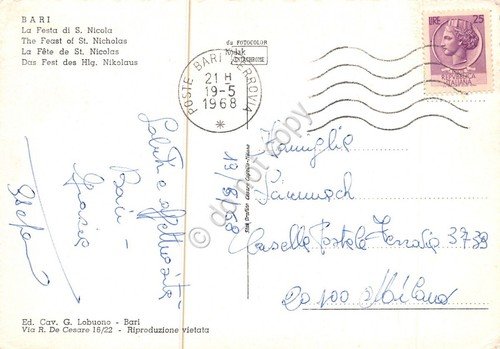 BARI
La Festa di S. Nicola
The Feast of St. Nicholas
La Fête de St. Nicolas
Das Fest des Hlg. Nikolaus
da FOTOCOLOR
Kodak
EKTACHROME
POSTE BARI FERROVIA
21 H
19-5
1968
LIRE 25
REPUBBLICA
ITALIANA
Saluti e affettuosità
Baci
19/5/68
Famiglia
Casella Postale Ferrovia 3733
20100 Milano
do not copy
Ed. Cav. G. Lobuono - Bari
Via R. De Cesare 18/22 - Riproduzione vietata